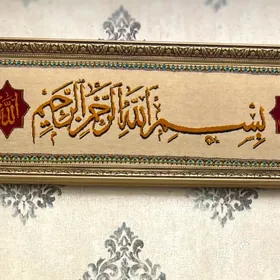 بسم الله الرحمن الرحيم
الله